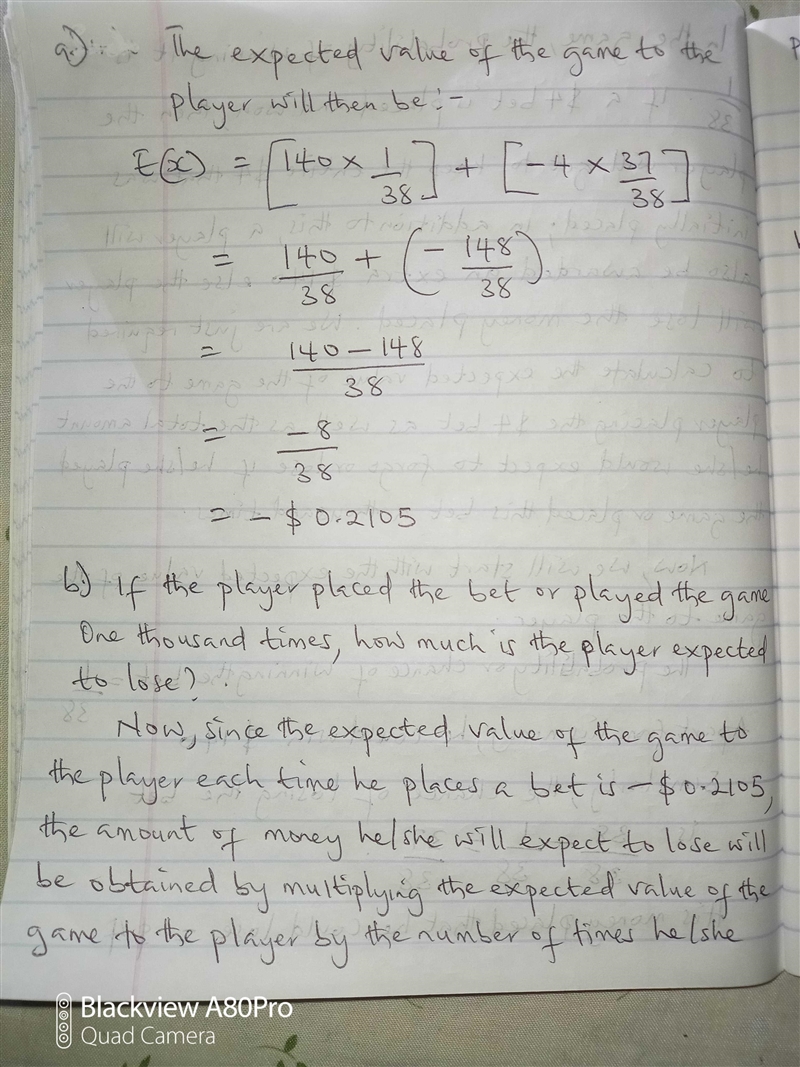 a.) ∴ The expected value of the game to the
player will then be :-
E(x) = [140 × 1/38] + [-4 × 37/38]
= 140/38 + (-148/38)
= 140 - 148/38
= -8/38
= - $ 0.2105
b.) If the player placed the bet or played the game
One thousand times, how much is the player expected
to lose?
Now, since the expected value of the game to
the player each time he places a bet is - $ 0.2105,
the amount of money he/she will expect to lose will
be obtained by multiplying the expected value of the
game to the player by the number of times he/she
Blackview A80Pro
Quad Camera